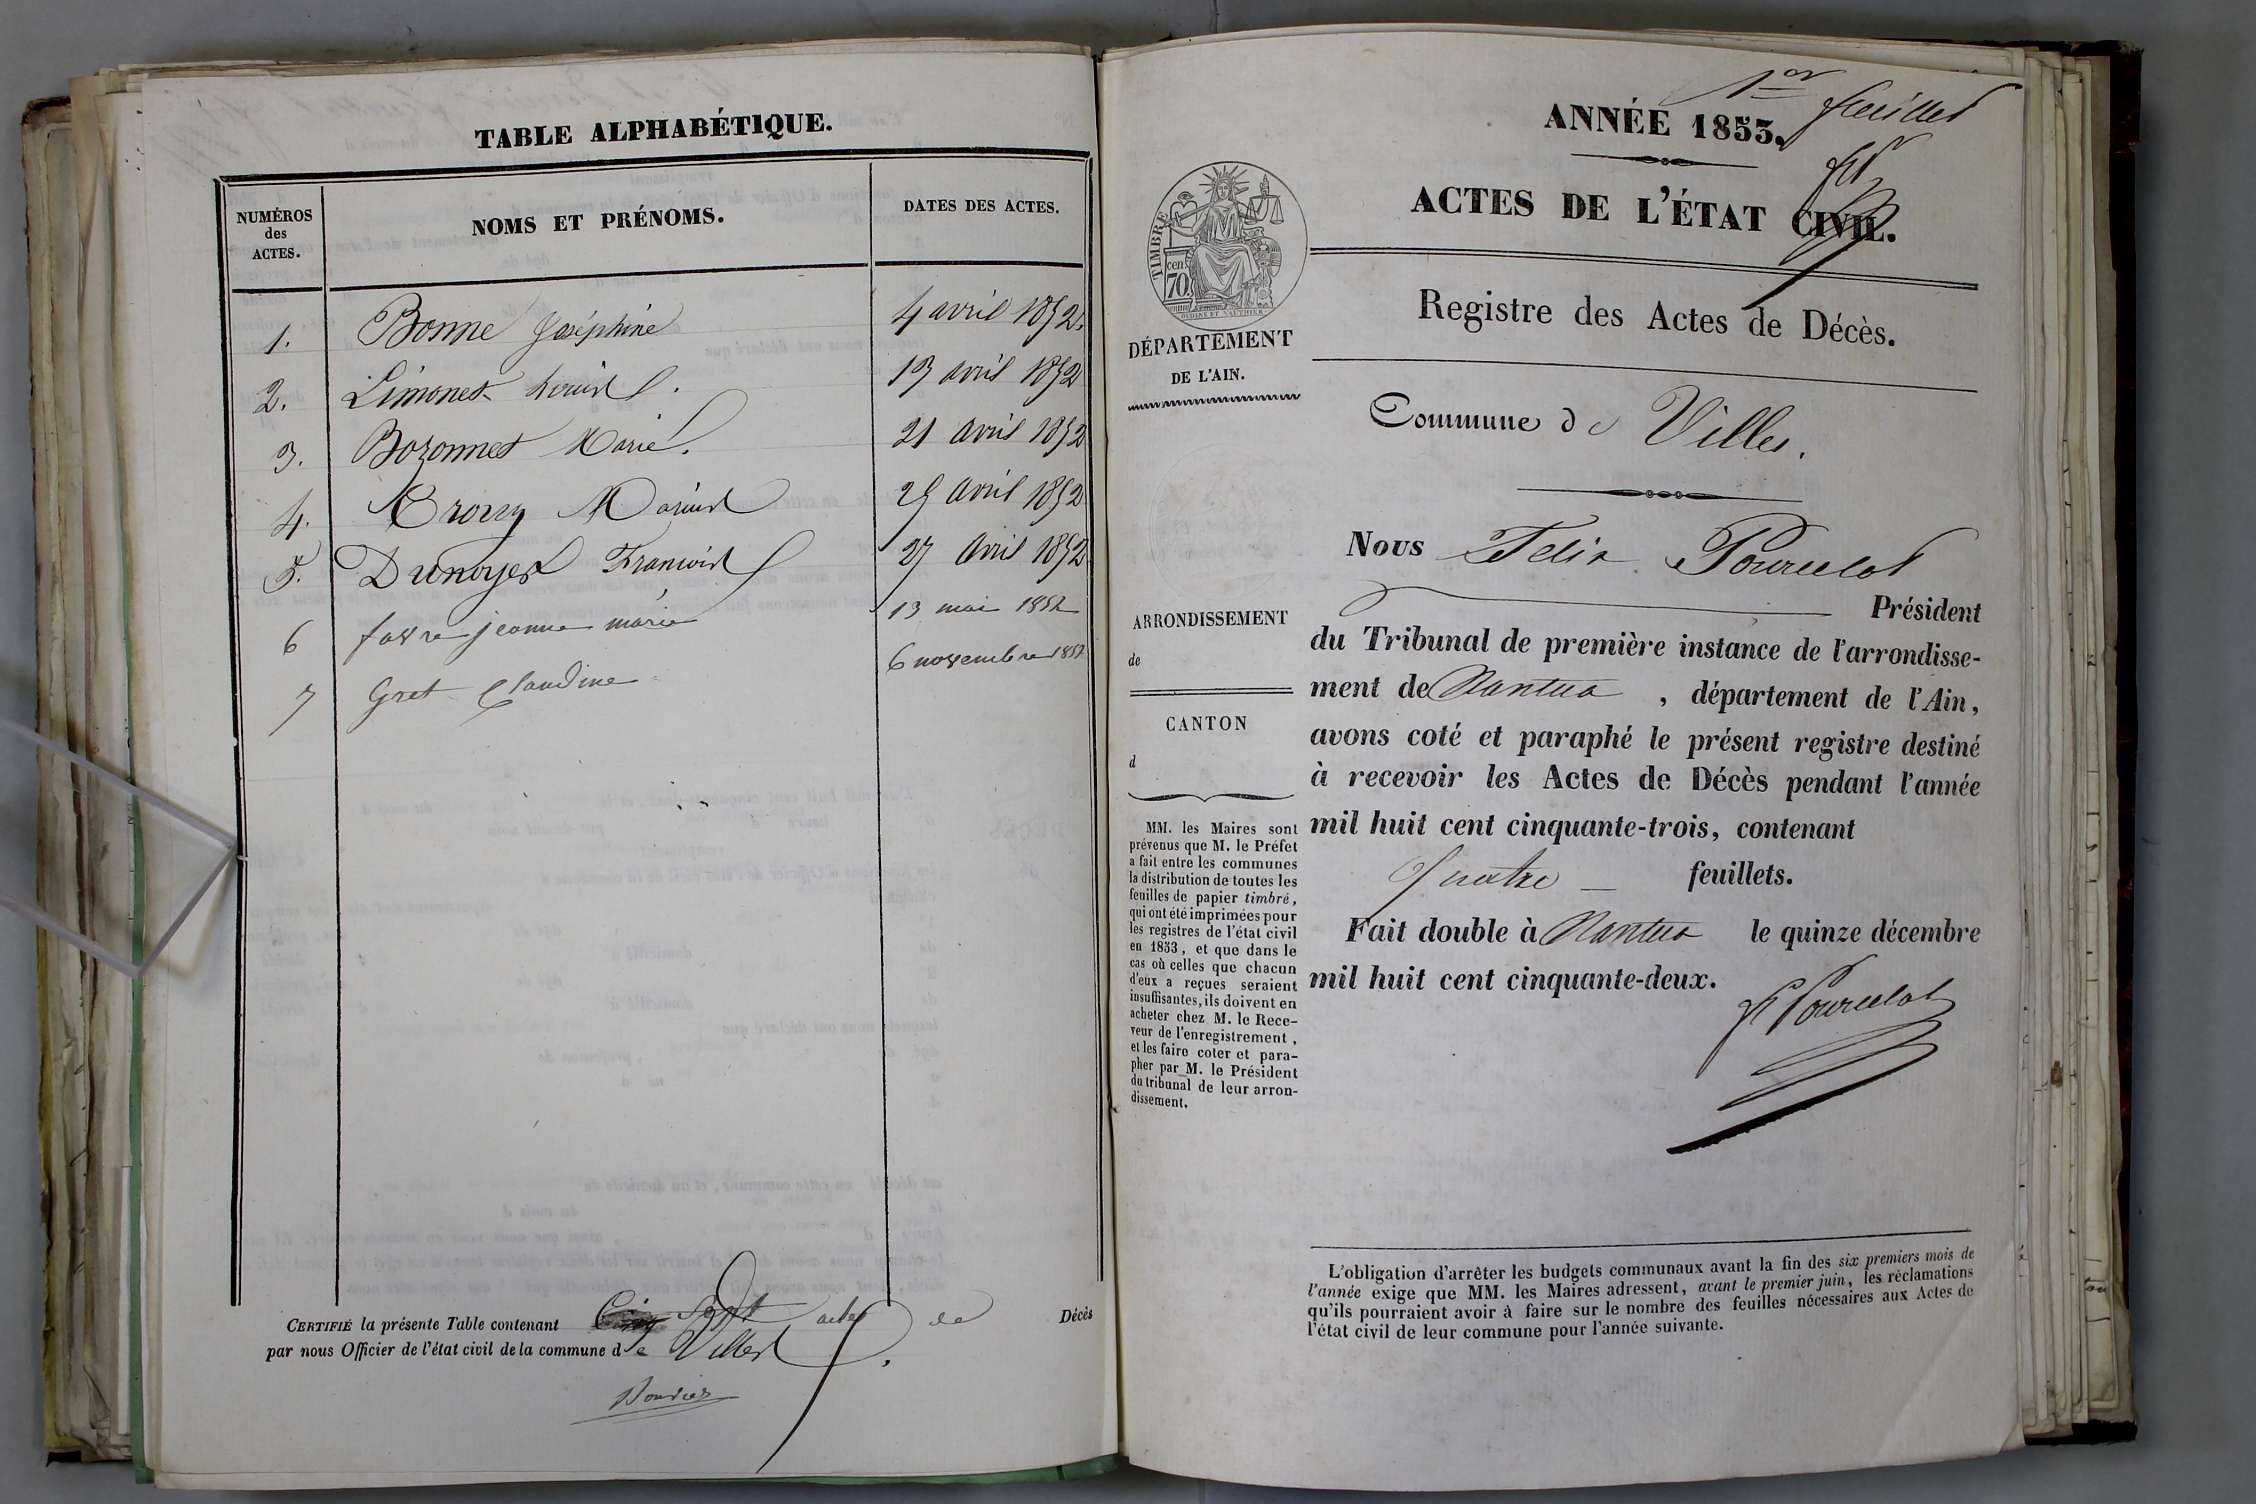 TABLE ALPHABÉTIQUE.
NUMÉROS
des
ACTES.
NOMS ET PRÉNOMS.
DATES DES ACTES.
1. Bonne Joséphine 4 avril 1852.
2. Limonet Louis. 13 avril 1852
3. Bozonnet Marie. 21 avril 1852
4. Marius 25 avril 1852
5. Dunoyer François 27 avril 1852
6 favre jeanne marie 13 mai 1852
7 Gret Claudine 6 novembre 1852
CERTIFIÉ la présente Table contenant Sept actes de Décès
par nous Officier de l'état civil de la commune de Villes.
1er feuillet
ANNÉE 1853.
ACTES DE L'ÉTAT CIVIL.
TIMBRE
cen.
70.
Registre des Actes de Décès.
DÉPARTEMENT
DE L'AIN.
Commune de Villes.
Nous Felix Pourcelot
Président
du Tribunal de première instance de l'arrondisse-
ment de Nantua, département de l'Ain,
avons coté et paraphé le présent registre destiné
à recevoir les Actes de Décès pendant l'année
mil huit cent cinquante-trois, contenant
Quatre feuillets.
Fait double à Nantua le quinze décembre
mil huit cent cinquante-deux.
F Pourcelot
ARRONDISSEMENT
de
CANTON
d
MM. les Maires sont
prévenus que M. le Préfet
a fait entre les communes
la distribution de toutes les
feuilles de papier timbré,
qui ont été imprimées pour
les registres de l'état civil
en 1853, et que dans le
cas où celles que chacun
d'eux a reçues seraient
insuffisantes, ils doivent en
acheter chez M. le Rece-
veur de l'enregistrement,
et les faire coter et para-
pher par M. le Président
du tribunal de leur arron-
dissement.
L'obligation d'arrêter les budgets communaux avant la fin des six premiers mois de
l'année exige que MM. les Maires adressent, avant le premier juin, les réclamations
qu'ils pourraient avoir à faire sur le nombre des feuilles nécessaires aux Actes de
l'état civil de leur commune pour l'année suivante.